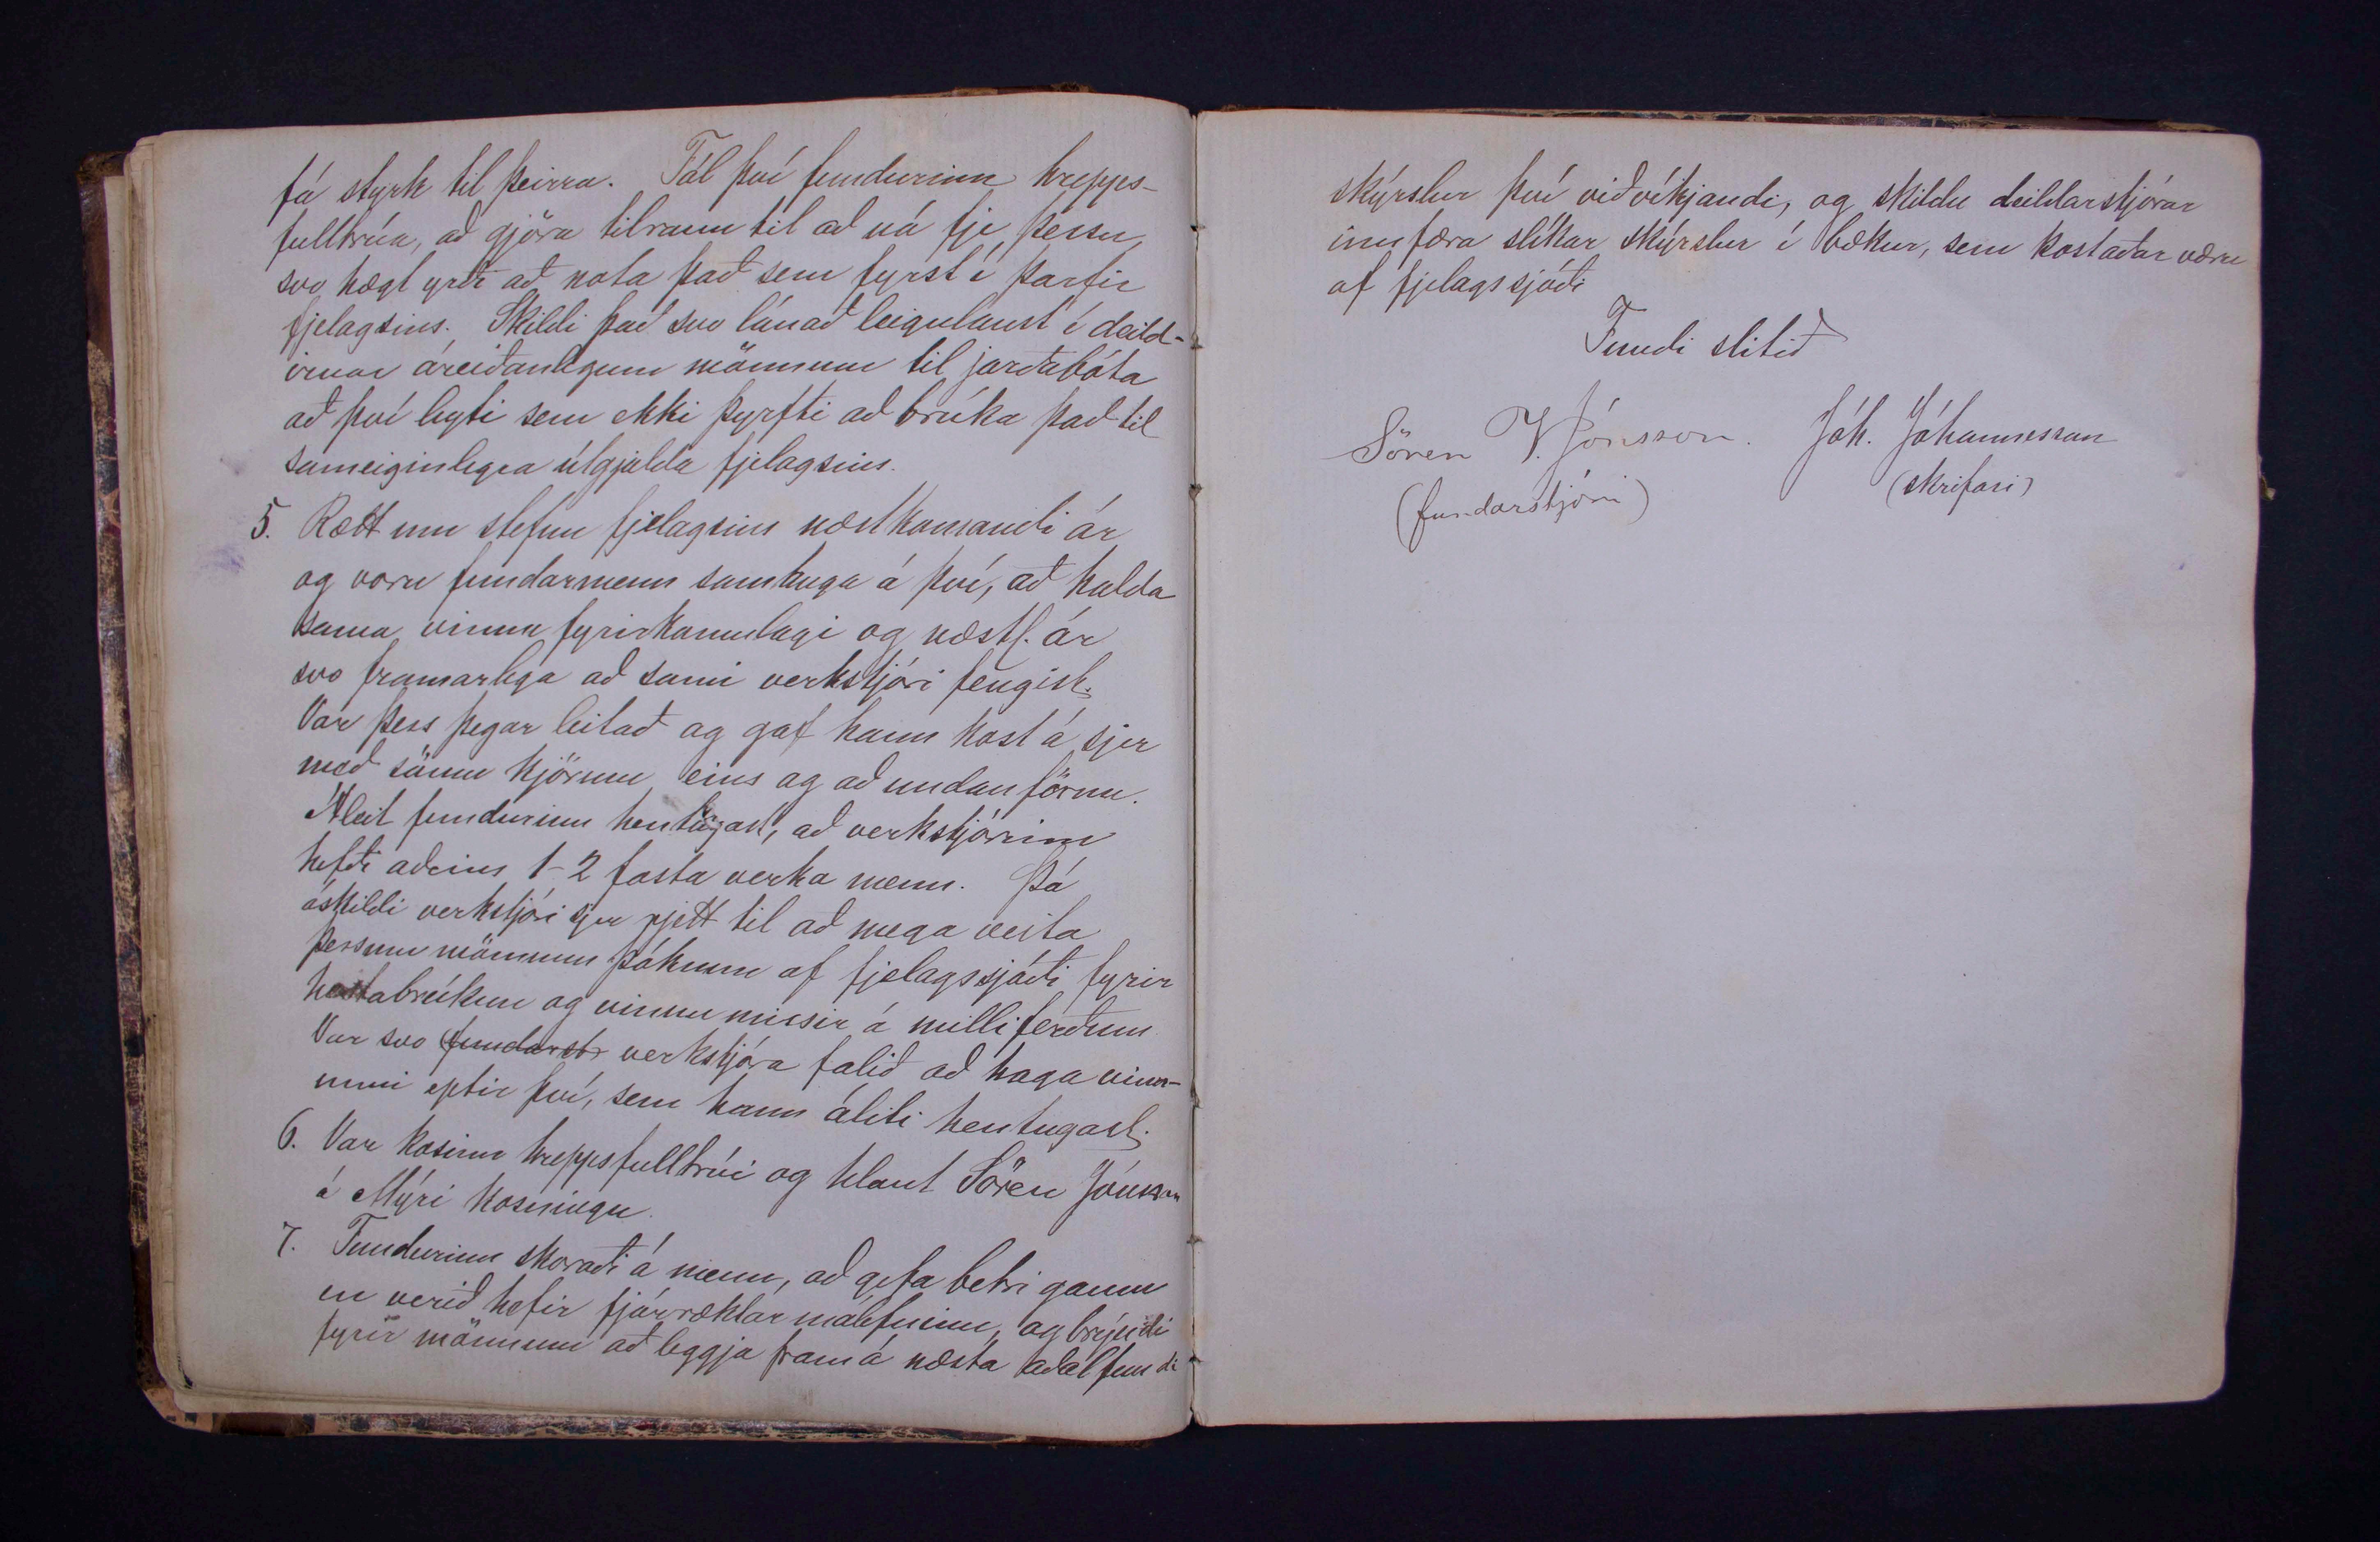 fá styrk til þeirra. Fól því fundurinn hrepps-
fulltrúa, að gjöra tilraun til að ná fje þessu,
svo hægt yrði að nota það sem fyrst í þarfir
fjelagsins. Skildi það svo lánað leigulaust í deild-
irnar áreiðanlegum mönnum til jarðabóta
að því leyti sem ekki þyrfti að brúka það til
sameiginlegra útgjalda fjelagsins.
5. Rætt um stefnu fjelagsins næstkomandi ár
og voru fundarmenn samhuga á því, að halda
sama vinnu fyrirkomulagi og næstl. ár
svo framarlega að sami verkstjóri fengist.
Var þess þegar leitað og gaf hann kost á sjer
með sömu kjörum eins og að undanförnu.
Áleit fundurinn hentugast, að verkstjórinn
hefði aðeins 1-2 fasta verka menn. Þá
áskildi verkstjóri sjer rjett til að mega veita
þessum mönnum þóknun af fjelagssjóði fyrir
hestabrúkun og vinnumissir á milliferðum
Var svo fundarst verkstjóra falið að haga vinn-
unni eptir því, sem hann áliti hentugast.
6. Var kosinn hreppsfulltrúi og hlaut Sören Jónsson
á Mýri kosningu.
7. Fundurinn skoraði á menn, að gefa betri gaum
en verið hefir fjárræktar málefninu, og brýndi
fyrir mönnum að leggja fram á næsta aðalfundi
skýrslur því viðvíkjandi, og skildu deildarstjórar
innfæra slíkar skýrslur í bækur, sem kostaðar væru
af fjelagssjóði
Fundi slitið
Sören V. Jónsson. Jóh. Jóhannesson
(fundarstjóri) (skrifari)